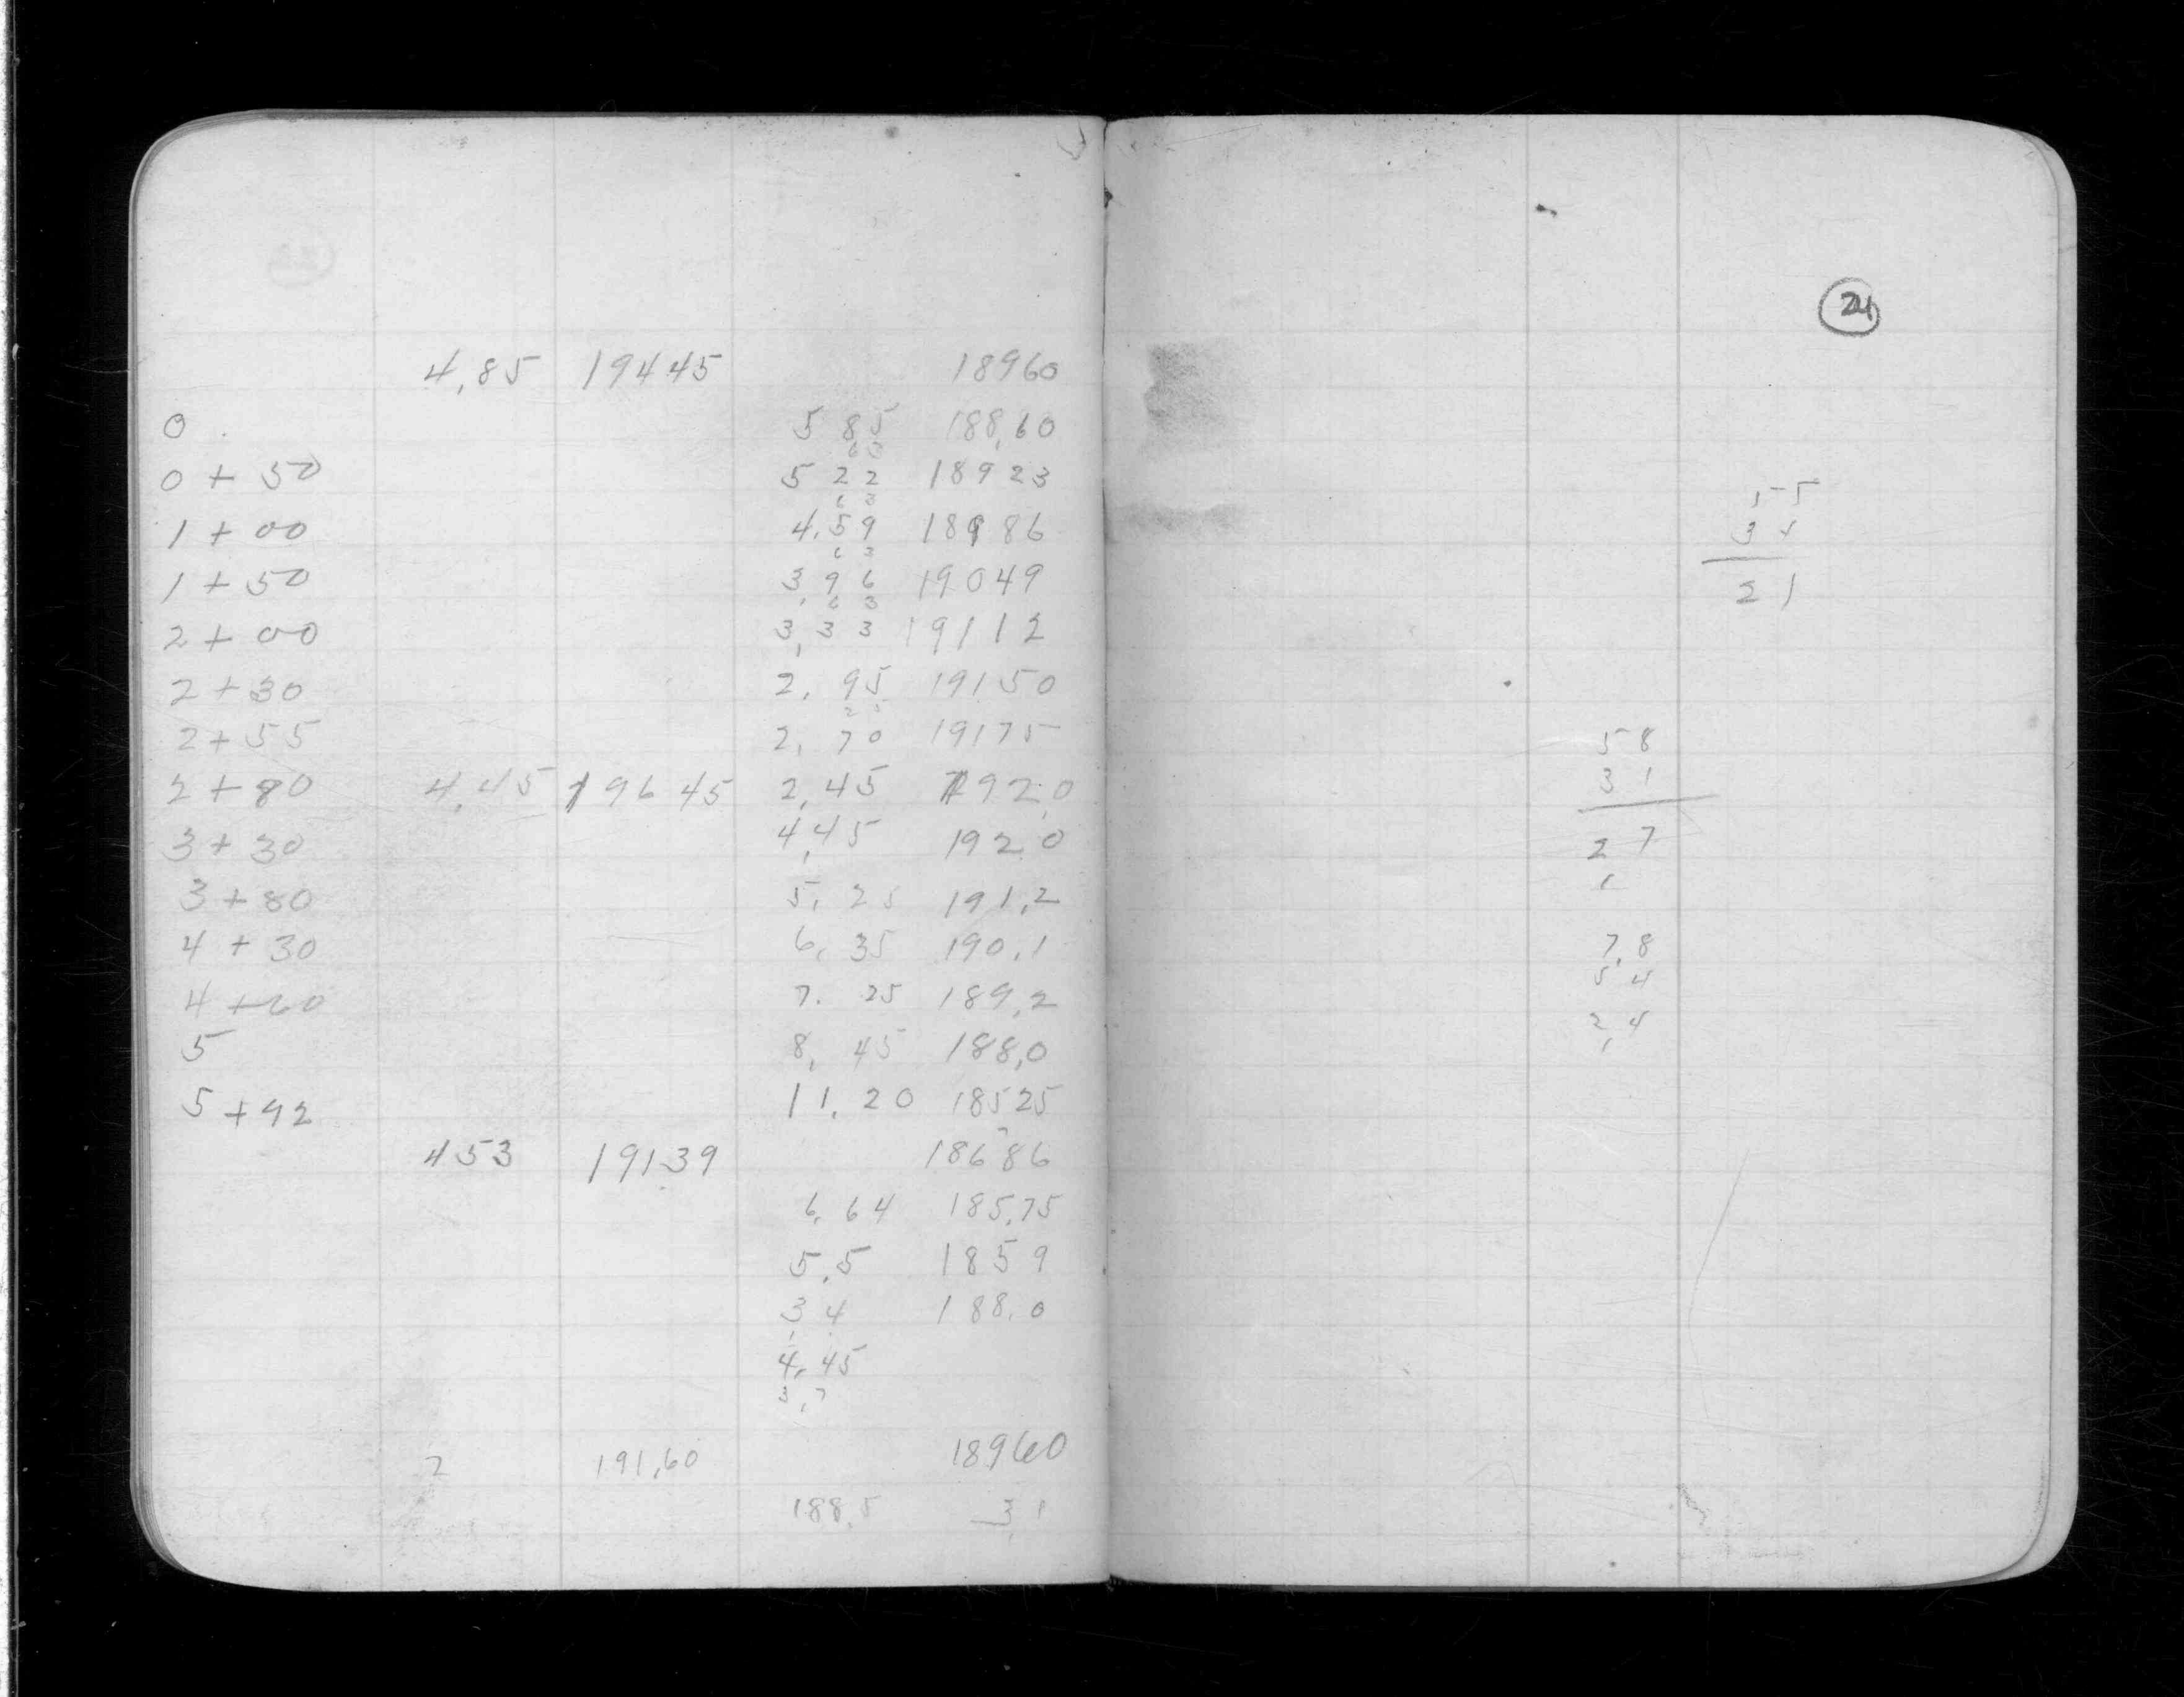 4.85 19445 18960
0 5 85 188.60
6 3
0 + 50 5 22 18923
6 3
1 + 00 4.59 18986
6 3
1 + 50 3.96 19049
6 3
2 + 00 3.33 19112
2 + 30 2.95 19150
2 5
2 + 55 2.70 19175
2 + 80 4.45 19645 2.45 192.0
3 + 30 4.45 192.0
3 + 80 5.25 191.2
4 + 30 6.35 190.1
4 + 60 7.25 189.2
5 8.45 188.0
5 + 92 11.20 18525
453 191.39 18686
6.64 185.75
5.5 1859
3.4 188.0
4.45
3.7
2 191.60 18960
188.5 3.1
24
5 5
3 4
2 1
5 8
3 1
2 7
7.8
5 4
2.4